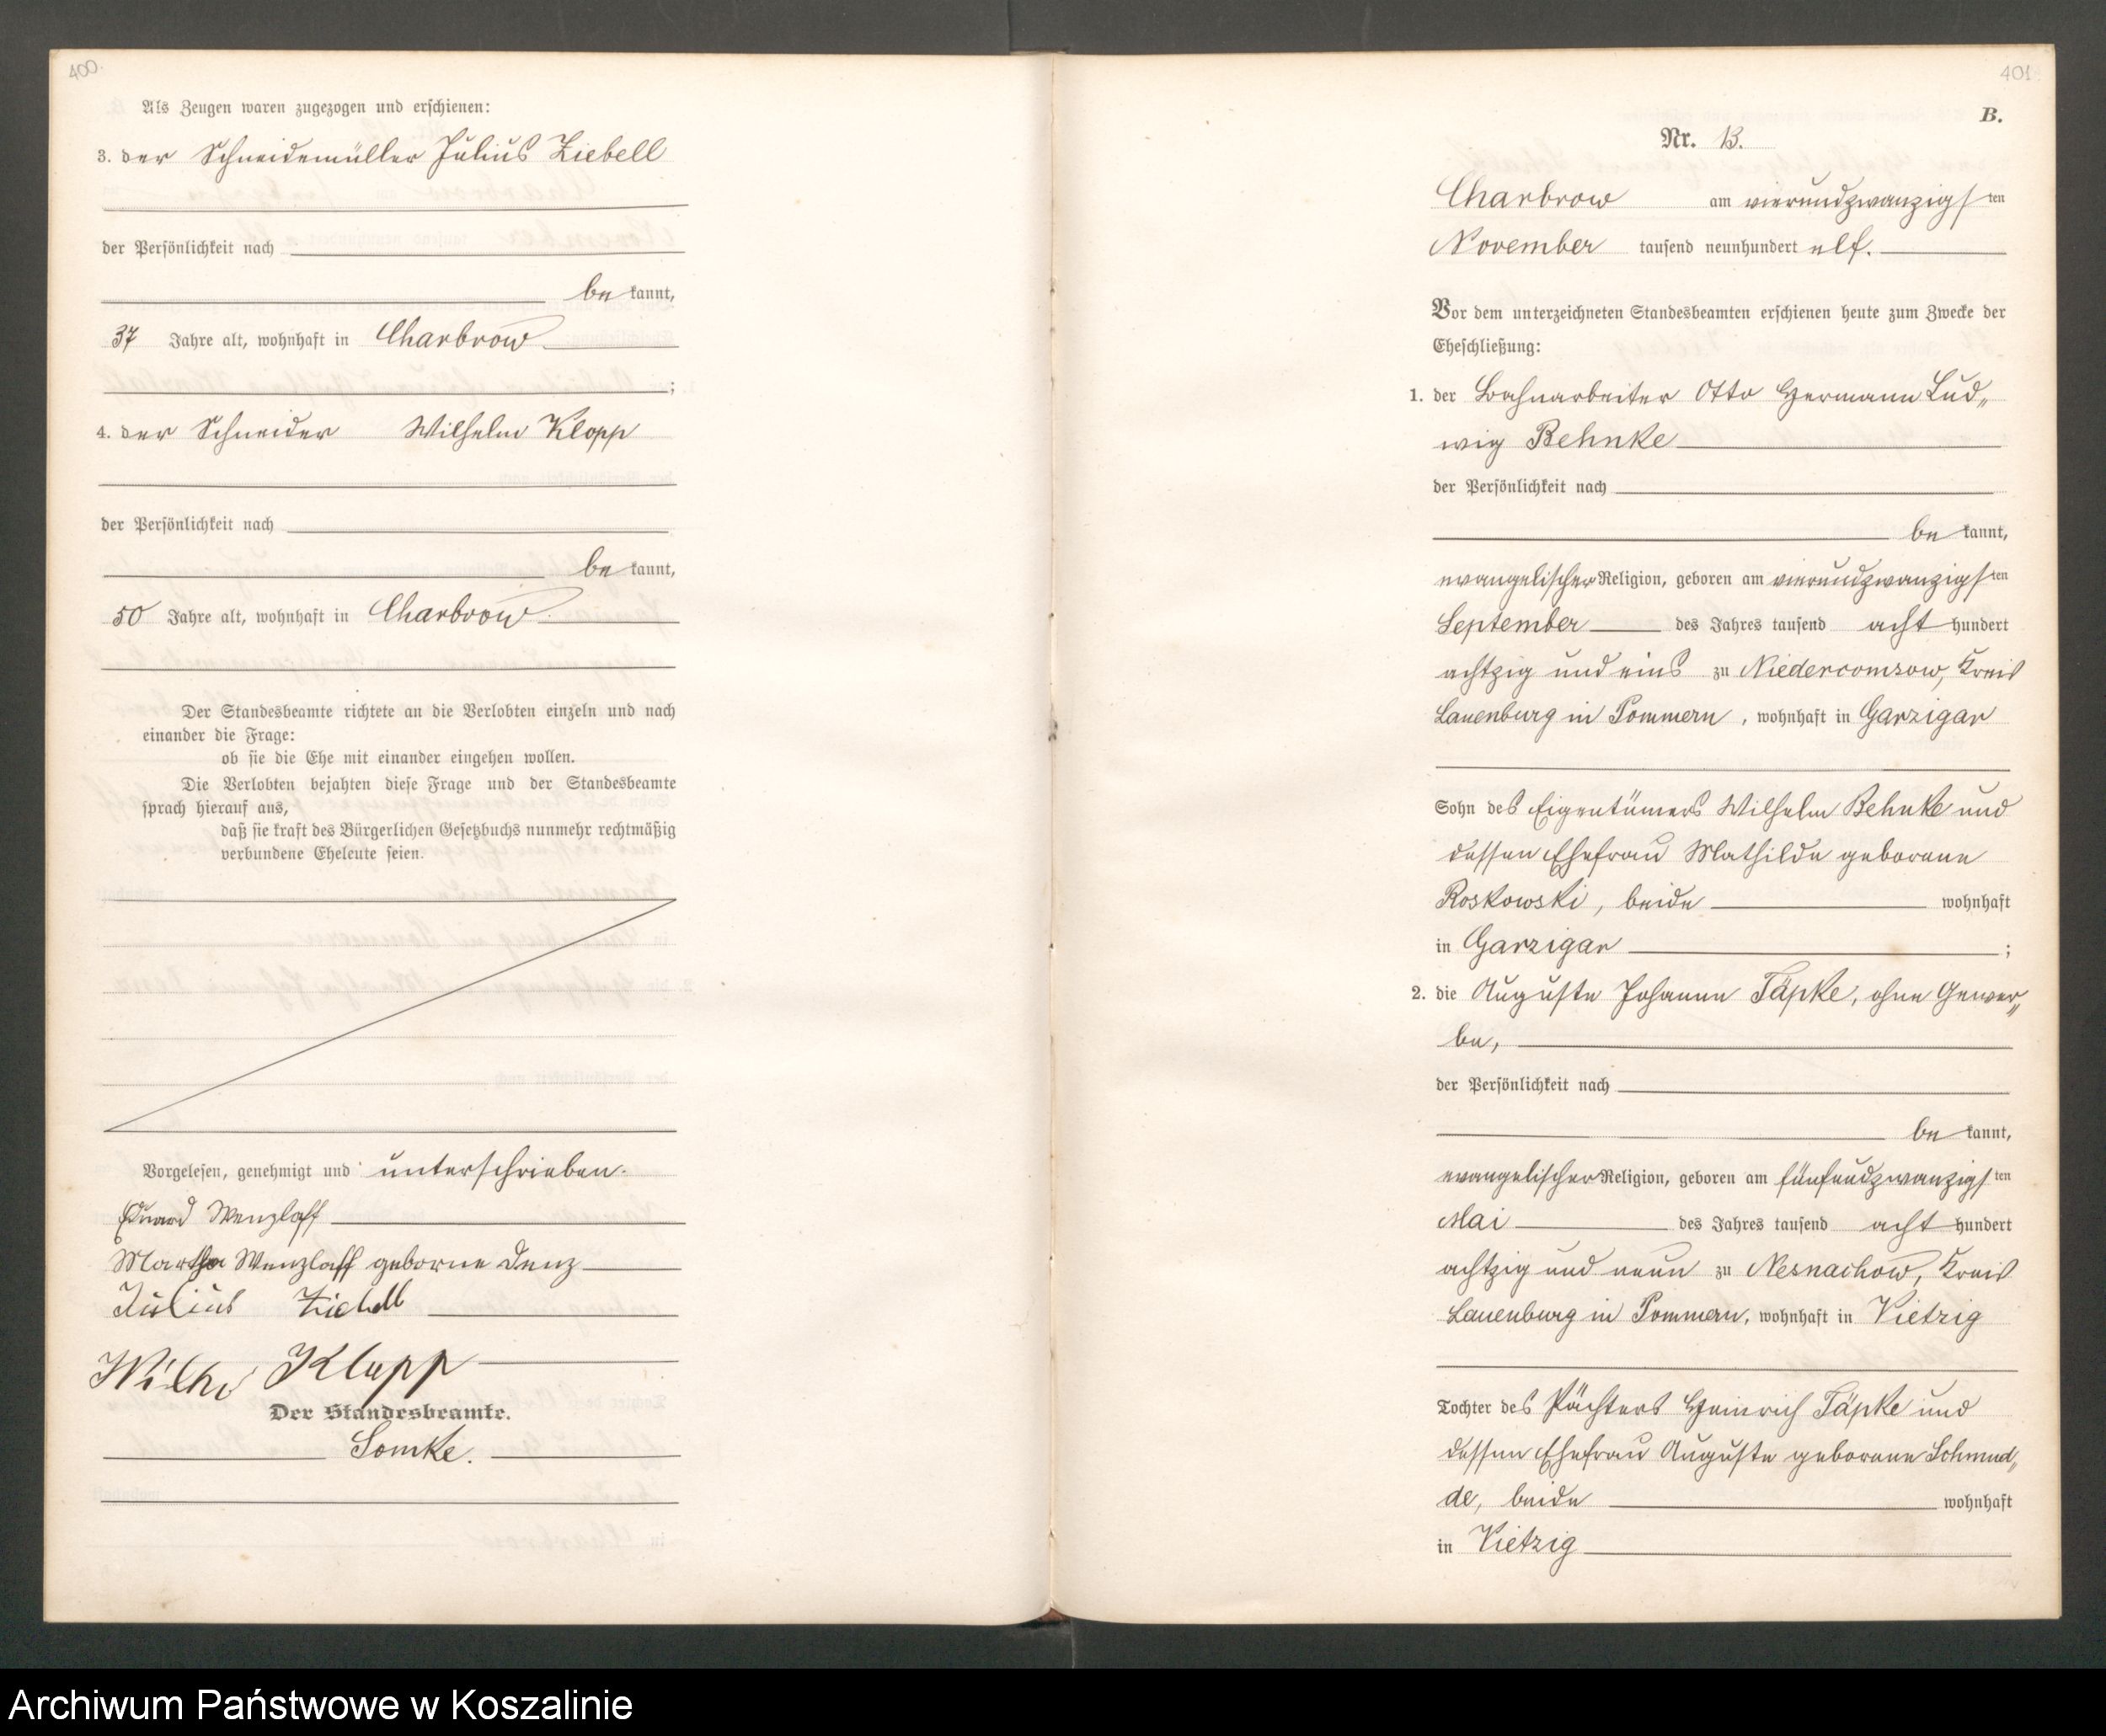 400.
Als Zeugen waren zugezogen und erschienen:
3. der Schneidemüller Julius Ziebell
der Persönlichkeit nach
be kannt,
37 Jahre alt, wohnhaft in Charbrow
;
4. der Schneider Wilhelm Klopp
der Persönlichkeit nach
be kannt,
50 Jahre alt, wohnhaft in Charbrow.
Der Standesbeamte richtete an die Verlobten einzeln und nach
einander die Frage:
ob sie die Ehe mit einander eingehen wollen.
Die Verlobten bejahten diese Frage und der Standesbeamte
sprach hierauf aus,
daß sie kraft des Bürgerlichen Gesetzbuchs nunmehr rechtmäßig
verbundene Eheleute seien.
Vorgelesen, genehmigt und unterschrieben.
Eduard Wenzlaff
Martha Wenzlaff geborne Denz
Julius Ziebell
Wilhe Klopp
Der Standesbeamte.
Somke.
401
B.
Nr. 13.
Charbrow am vierundzwanzigsten
November tausend neunhundert elf.
Vor dem unterzeichneten Standesbeamten erschienen heute zum Zwecke der
Eheschließung:
1. der Bahnarbeiter Otto Hermann Lud„
wig Behnke
der Persönlichkeit nach
be kannt,
evangelischer Religion, geboren am vierundzwanzigsten
September des Jahres tausend acht hundert
achtzig und eins zu Niedercomsow, Kreis
Lauenburg in Pommern, wohnhaft in Garzigar
Sohn des Eigentümers Wilhelm Behnke und
dessen Ehefrau Mathilde geborene
Roskowski, beide wohnhaft
in Garzigar ;
2. die Auguste Johanne Täpke, ohne Gewer„
be,
der Persönlichkeit nach
be kannt,
evangelischer Religion, geboren am fünfundzwanzigsten
Mai des Jahres tausend acht hundert
achtzig und neun zu Nesnachow, Kreis
Lauenburg in Pommern, wohnhaft in Vietzig
Tochter des Pächters Heinrich Täpke und
dessen Ehefrau Auguste geborene Schmud„
de, beide wohnhaft
in Vietzig
Archiwum Państwowe w Koszalinie